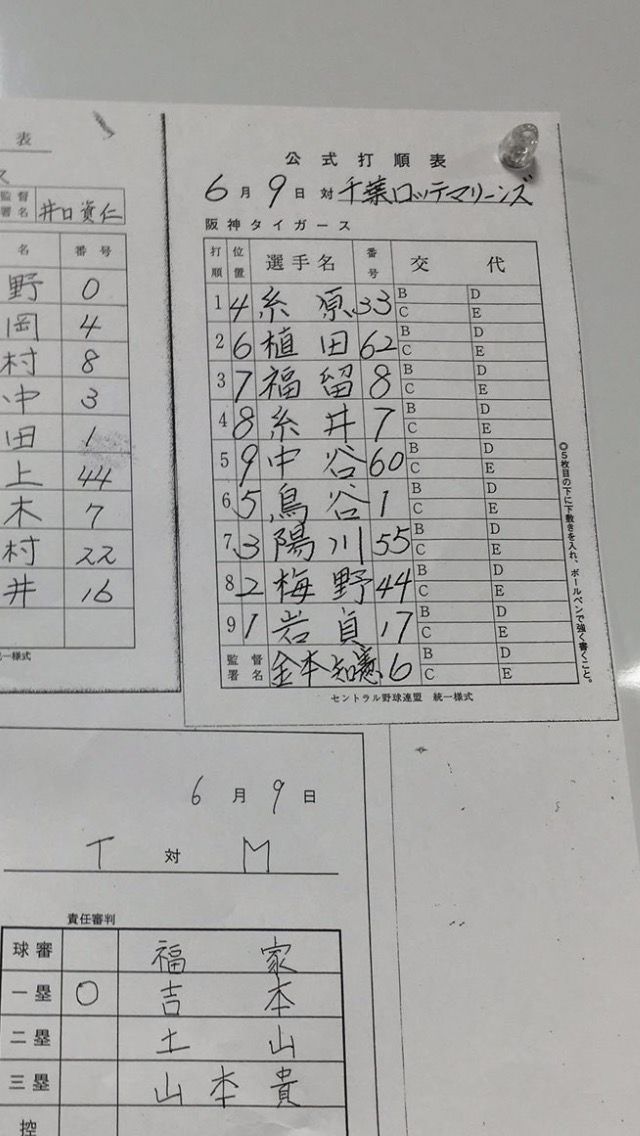 表
監督署名 井口資仁
名 番号
野 0
岡 4
村 8
中 3
田 1
上 44
木 7
村 22
井 16
統一様式
公式打順表
6月9日対千葉ロッテマリーンズ
阪神タイガース
打順 位置 選手名 番号 交代
1 4 糸原 33 B D C E
2 6 植田 62 B D C E
3 7 福留 8 B D C E
4 8 糸井 7 B D C E
5 9 中谷 60 B D C E
6 5 鳥谷 1 B D C E
7 3 陽川 55 B D C E
8 2 梅野 44 B D C E
9 1 岩貞 17 B D C E
監督署名 金本知憲 6 B D C E
セントラル野球連盟 統一様式
◎5枚目の下に下敷きを入れ、ボールペンで強く書くこと。
6月9日
T対M
責任審判
球審 福家
一塁 ○ 吉本
二塁 土山
三塁 山本貴
控